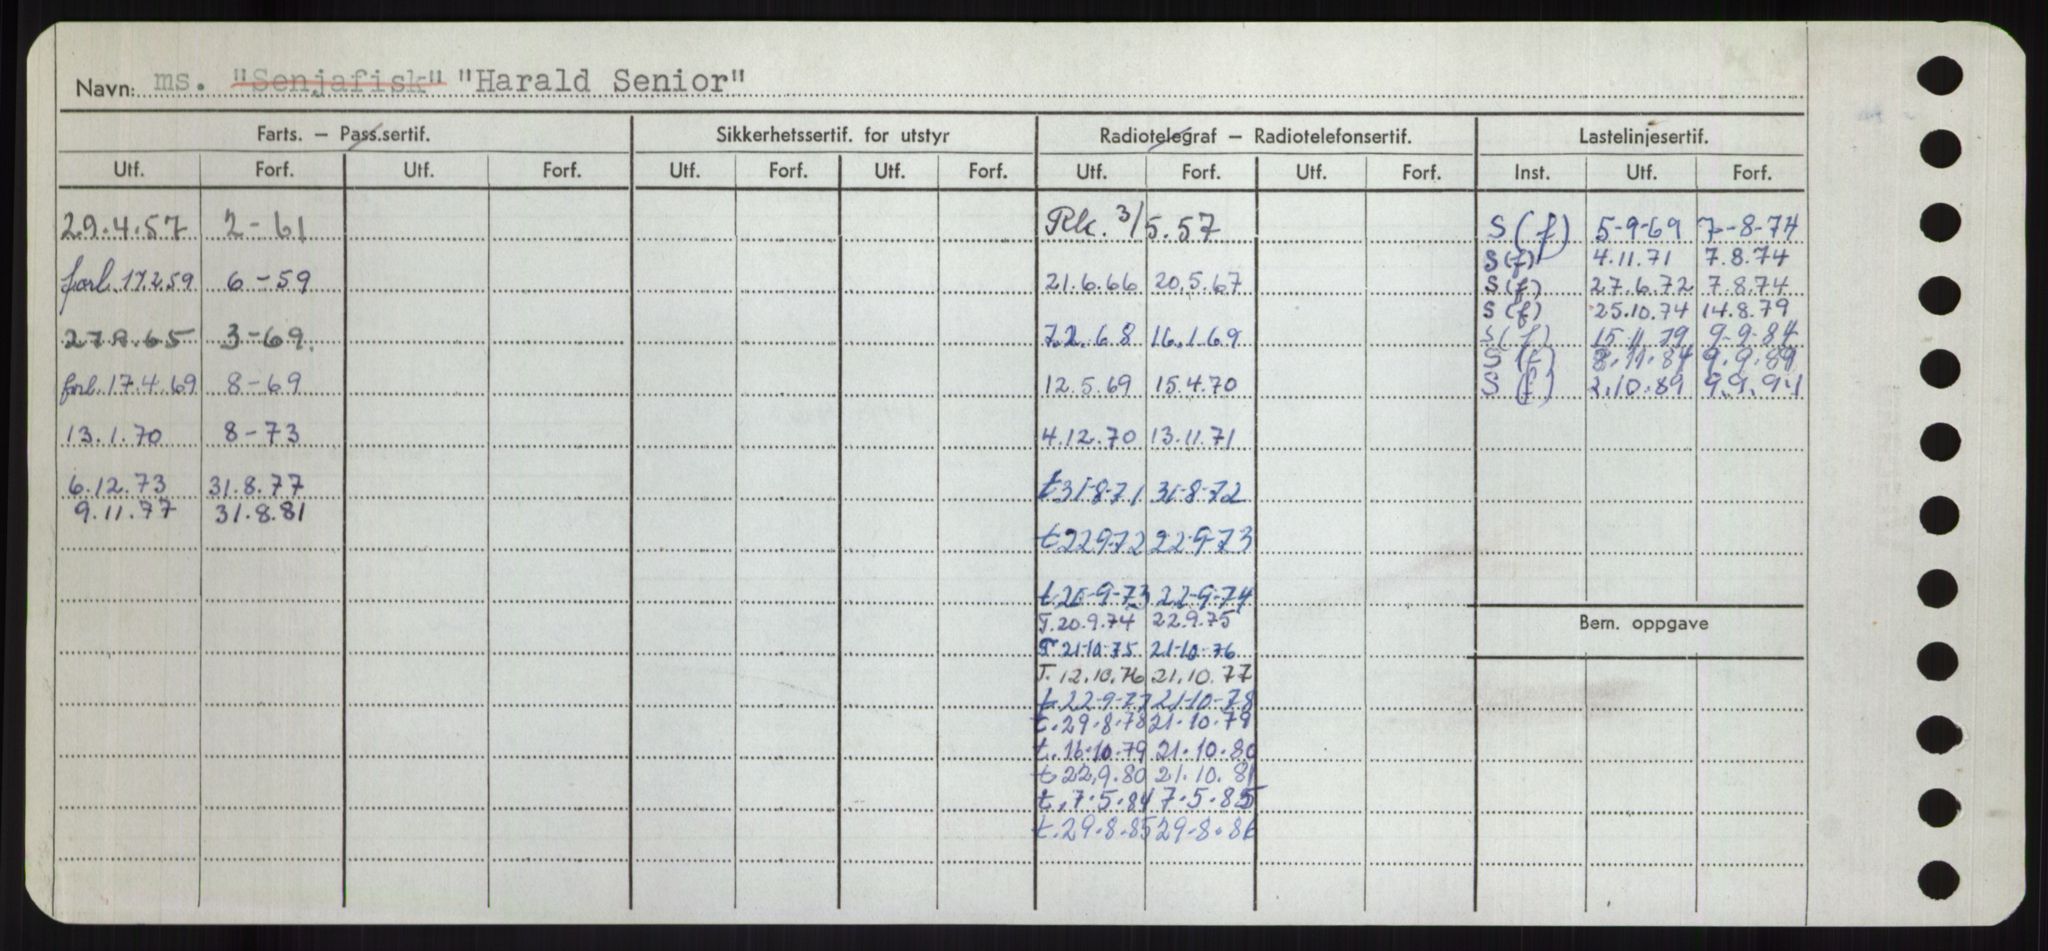 Navn: ms. "Senjafisk" "Harald Senior"
Farts. – Pass.sertif. Sikkerhetssertif. for utstyr Radiotelegraf – Radiotelefonsertif. Lastelinjesertif.
Utf. Forf. Utf. Forf. Utf. Forf. Utf. Forf. Utf. Forf. Utf. Forf. Inst. Utf. Forf.
29.4.57 2-61 Rk. 3/5.57 S(f) 5-9-69 7-8-74
S(f) 4.11.71 7.8.74
forl. 17.2.59 6-59 21.6.66 20.5.67 S(f) 27.6.72 7.8.74
S(f) 25.10.74 14.8.79
27.9.65 3-69. 7.2.68 16.1.69 S(f) 15.11.79 9-9-84
S(f) 8.11.84 9.9.89
forl. 17.4.69 8-69 12.5.69 15.4.70 S(f) 2.10.89 9.9.94
13.1.70 8-73 4.12.70 13.11.71
6.12.73 31.8.77 t31-8-71 31-8-72
9.11.77 31.8.81
t22972 22-9-73
t.20-9-73 22-9-74
T.20.9.74 22.9.75
Bem. oppgave
T 21-10-75 21-10-76
T. 12.10.76 21.10.77
t.22-9-77 21-10-78
t.29-8-78 21.10.79
t.16.10.79 21.10.80
t 22.9.80 21.10.81
t.7.5.84 7.5.85
t.29-8-85 29-8.86